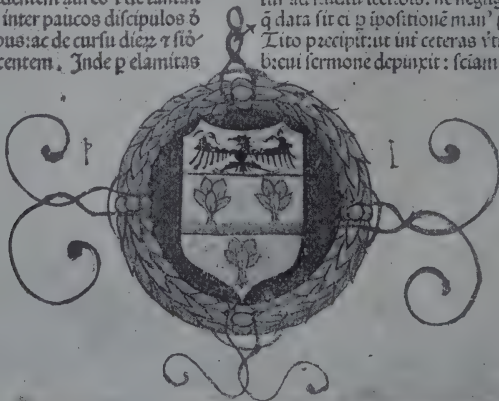 inter paucos discipulos d̄
pus: ac de cursu dieꝝ ⁊ siđ
centem. Inde ꝑ elamitas
q̄ data sit ei ꝑ ipositionē man'
Tito precipit: ut int̄ ceteras v̓t
breui sermone depinxit: sciam